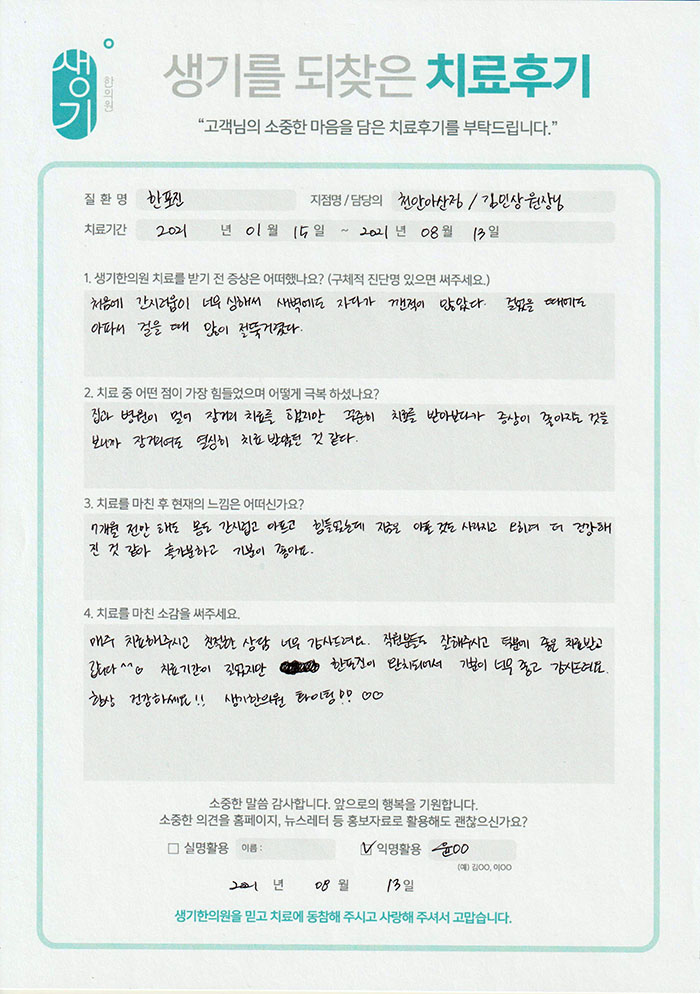 생기
한의원
생기를 되찾은 치료후기
“고객님의 소중한 마음을 담은 치료후기를 부탁드립니다.”
질 환 명 한포진 지점명 / 담당의 천안아산점 / 김민상 원장님
치료기간 2021 년 01 월 15 일 ~ 2021 년 08 월 13 일
1. 생기한의원 치료를 받기 전 증상은 어떠했나요? (구체적 진단명 있으면 써주세요.)
처음에 간지러움이 너무 심해서 새벽에도 자다가 깬적이 많았다. 걸었을 때에도
아파서 걸을 때 많이 절뚝거렸다.
2. 치료 중 어떤 점이 가장 힘들었으며 어떻게 극복 하셨나요?
집과 병원이 멀어 장거리 치료를 했지만 꾸준히 치료를 받아보다가 증상이 좋아지는 것을
보니까 장거리여도 열심히 치료 받았던 것 같다.
3. 치료를 마친 후 현재의 느낌은 어떠신가요?
7개월 전만 해도 몸도 간지럽고 아프고 힘들었는데 지금은 아픈 것도 사라지고 오히려 더 건강해
진 것 같아 홀가분하고 기분이 좋아요.
4. 치료를 마친 소감을 써주세요.
매주 치료해주시고 친절한 상담 너무 감사드려요. 직원분들도 잘해주시고 덕분에 좋은 치료받고
갑니다^^♡ 치료기간이 길었지만 한포진이 완치되어서 기분이 너무 좋고 감사드려요.
항상 건강하세요!! 생기한의원 화이팅!! ♡♡
소중한 말씀 감사합니다. 앞으로의 행복을 기원합니다.
소중한 의견을 홈페이지, 뉴스레터 등 홍보자료로 활용해도 괜찮으신가요?
□ 실명활용 이름 : ☑ 익명활용 윤OO
(예) 김OO, 이OO
2021 년 08 월 13 일
생기한의원을 믿고 치료에 동참해 주시고 사랑해 주셔서 고맙습니다.